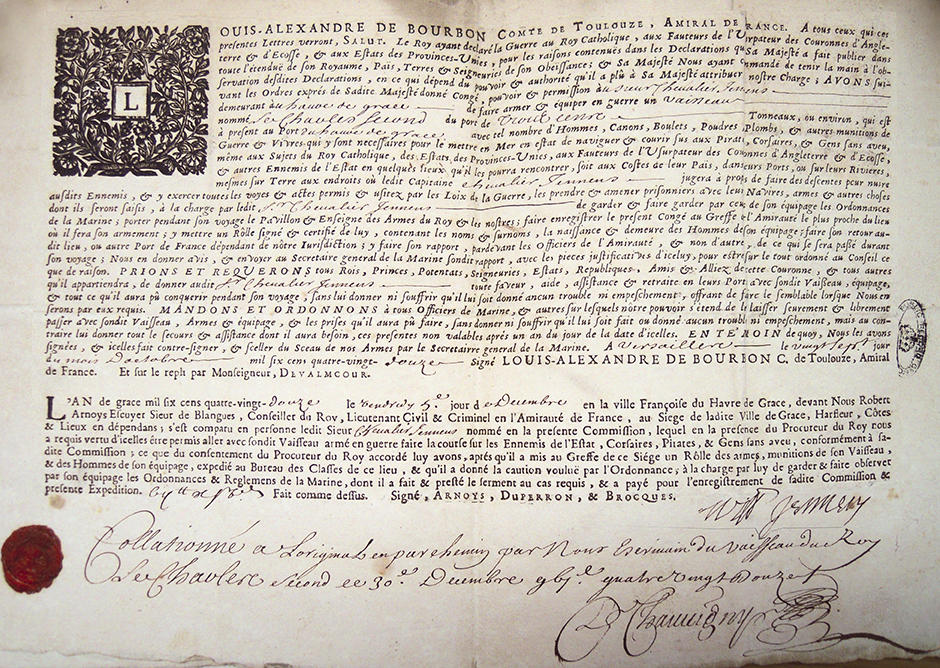 L
LOUIS-ALEXANDRE DE BOURBON COMTE DE TOULOUZE, AMIRAL DE FRANCE. A tous ceux qui ces
presentes Lettres verront, SALUT. Le Roy ayant declaré la Guerre au Roy Catholique, aux Fauteurs de l'Usurpateur des Couronnes d'Angle-
terre & d'Ecosse, & aux Estats des Provinces-Unies, pour les raisons contenuës dans les Declarations que Sa Majesté a fait publier dans
toute l'étenduë de son Royaume, Païs, Terres & Seigneuries de son Obeissance; & Sa Majesté Nous ayant commandé de tenir la main à l'ob-
servation desdites Declarations, en ce qui dépend du pouvoir & authorité qu'il a plû à Sa Majesté attribuer à nostre Charge; AVONS sui-
vant les Ordres exprés de Sadite Majesté donné Congé, pouvoir & permission à du sieur Chevalier Jennens
demeurant à havre de grace de faire armer & équiper en guerre un vaisseau
nommé Le Charles Second du port de Trois cens Tonneaux, ou environ, qui est
à present au Port du havre de grace avec tel nombre d'Hommes, Canons, Boulets, Poudres, Plombs, & autres munitions de
Guerre & Vivres qui y sont necessaires pour le mettre en Mer en estat de naviguer & courir sus aux Pirates, Corsaires, & Gens sans aveu,
même aux Sujets du Roy Catholique, des Estats, des Provinces-Unies, aux Fauteurs de l'Usurpateur des Couronnes d'Angleterre & d'Ecosse,
& autres Ennemis de l'Estat en quelques lieux qu'il les pourra rencontrer, soit aux Costes de leur Païs, dans leurs Ports, ou sur leurs Rivieres,
mesmes sur Terre aux endroits où ledit Capitaine Chevalier Jennens jugera à propos de faire des descentes pour nuire
ausdits Ennemis, & y exercer toutes les voyes & actes permis & usitez par les Loix de la Guerre, les prendre & amener prisonniers avec leurs Navires, armes & autres choses
dont ils seront saisis, à la charge par ledit Sr. Chevalier Jennens de garder & faire garder par ceux de son équipage les Ordonnances
de la Marine; porter pendant son voyage le Pavillon & Enseigne des Armes du Roy & les nostres; faire enregistrer le present Congé au Greffe de l'Amirauté le plus proche du lieu
où il fera son armement; y mettre un Rôlle signé & certifié de luy, contenant les noms & surnoms, la naissance & demeure des Hommes de son équipage; faire son retour au-
dit lieu, ou autre Port de France dépendant de nôtre Jurisdiction; y faire son rapport, pardevant les Officiers de l'Amirauté, & non d'autre, de ce qui se sera passé durant
son voyage; Nous en donner avis, & envoyer au Secretaire general de la Marine sondit rapport, avec les pieces justificatives d'iceluy, pour estre sur le tout ordonné au Conseil ce
que de raison. PRIONS ET REQUERONS tous Rois, Princes, Potentats, Seigneuries, Estats, Republiques, Amis & Alliez de cette Couronne, & tous autres
qu'il appartiendra, de donner audit Sr. Chevalier Jennens toute faveur, aide, assistance & retraite en leurs Ports avec sondit Vaisseau, équipage,
& tout ce qu'il aura pû conquerir pendant son voyage, sans lui donner ni souffrir qu'il lui soit donné aucun trouble ni empeschement, offrant de faire le semblable lorsque Nous en
serons par eux requis. MANDONS ET ORDONNONS à tous Officiers de Marine, & autres sur lesquels notre pouvoir s'étend de le laisser seurement & librement
passer avec sondit Vaisseau, Armes & équipage, & les prises qu'il aura pû faire, sans donner ni souffrir qu'il lui soit fait ou donné aucun trouble ni empeschement, mais au con-
traire lui donner tout le secours & assistance dont il aura besoin, ces presentes non valables aprés un an du jour de la date d'icelles. EN TEMOIN dequoy Nous les avons
signées, & icelles fait contre-signer, & sceller du Sceau de nos Armes par le Secretairre general de la Marine. A Versailles le vingt sept jour
du mois d'octobre mil six cens quatre-vingt-douze Signé LOUIS-ALEXANDRE DE BOURBON C. de Toulouze, Amiral
de France. Et sur le repli par Monseigneur, DEVALMCOUR.
L'AN de grace mil six cens quatre-vingt-douze le vendredy 5e. jour de Decembre en la ville Françoise du Havre de Grace, devant Nous Robert
Arnoys Escuyer Sieur de Blangues, Conseiller du Roy, Lieutenant Civil & Criminel en l'Amirauté de France, au Siege de ladite Ville de Grace, Harfleur, Côtes
& Lieux en dépendans; s'est comparu en personne ledit Sieur Chevalier Jennens nommé en la presente Commission, lequel en la presence du Procureur du Roy nous
a requis vertu d'icelles être permis aller avec sondit Vaisseau armé en guerre faire la course sur les Ennemis de l'Estat, Corsaires, Pirates, & Gens sans aveu, conformément à sa-
dite Commission; ce que du consentement du Procureur du Roy accordé luy avons, aprés qu'il a mis au Greffe de ce Siége un Rôlle des armes, munitions de son Vaisseau,
& des Hommes de son équipage, expedié au Bureau des Classes de ce lieu, & qu'il a donné la caution vouluë par l'Ordonnance; à la charge par luy de garder & faire observer
par son équipage les Ordonnances & Reglemens de la Marine, dont il a fait & presté le serment au cas requis, & a payé pour l'enregistrement de sadite Commission &
presente Expedition. Fait comme dessus. Signé, ARNOYS, DUPERRON, & BROCQUES.
Wm Jennens
Collationné a Loriginal en parchemin par Nous Escrivain du Vaisseau du Roy
Le Charles Second ce 30e. Decembre quatre vingt Douze